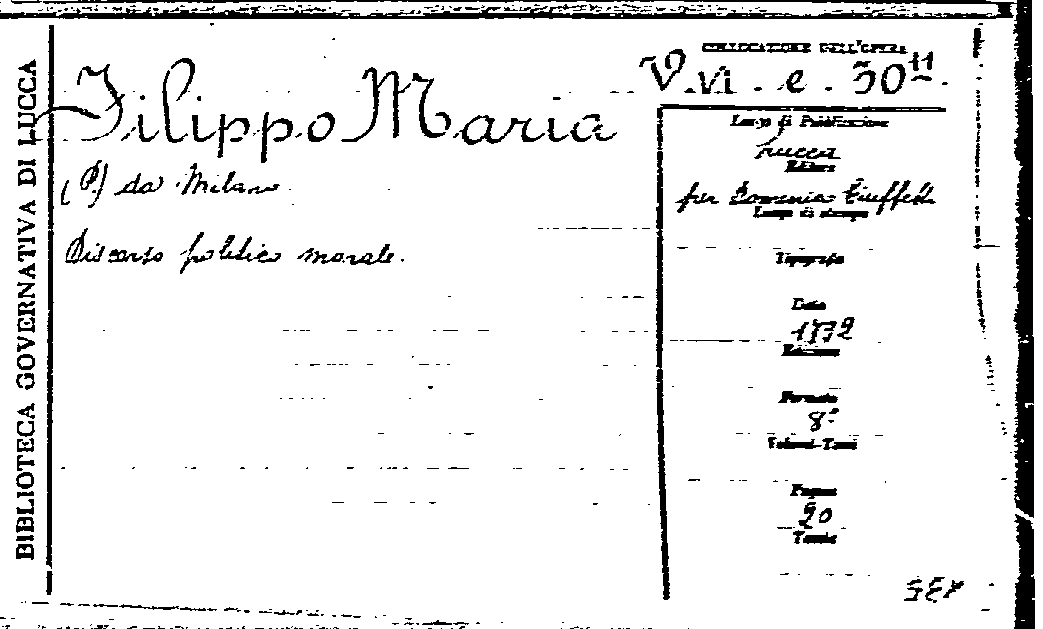 BIBLIOTECA GOVERNATIVA DI LUCCA
Filippo Maria
(P.) da Milano
Discorso politico morale.
COLLOCAZIONE DELL'OPERA
V.VI. e. 30¹¹
Luogo di Pubblicazione
Lucca
Editore
per Domenico Ciuffetti
Luogo di stampa
Tipografo
Data
1732
Edizione
Formato
8º
Volumi-Tomi
Pagine
20
Tavole